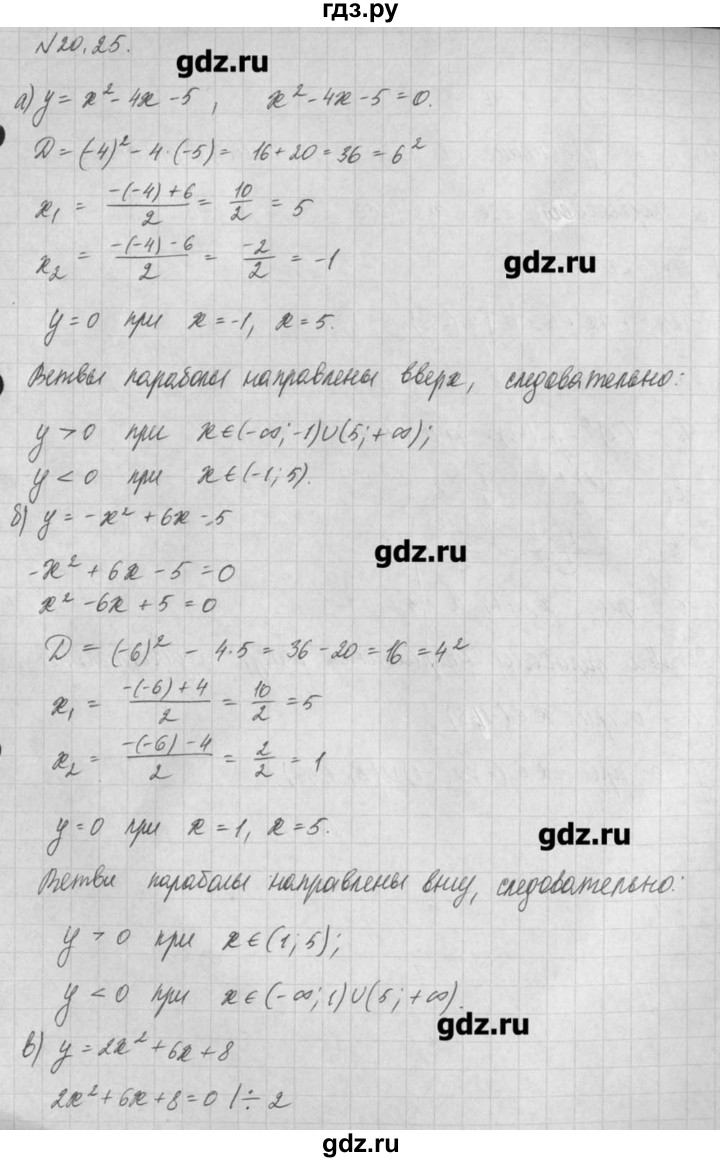 гдз.ру
№20.25.
gdz.ru
а) y = x² - 4x - 5 , x² - 4x - 5 = 0.
D = (-4)² - 4·(-5) = 16 + 20 = 36 = 6²
x₁ = (-(-4) + 6)/2 = 10/2 = 5
x₂ = (-(-4) - 6)/2 = -2/2 = -1
gdz.ru
y = 0 при x = -1, x = 5.
Ветвы параболы направлены вверх, следовательно:
y > 0 при x ∈ (-∞; -1) ∪ (5; +∞);
y < 0 при x ∈ (-1; 5).
б) y = -x² + 6x - 5
gdz.ru
-x² + 6x - 5 = 0
x² - 6x + 5 = 0
D = (-6)² - 4·5 = 36 - 20 = 16 = 4²
x₁ = (-(-6) + 4)/2 = 10/2 = 5
x₂ = (-(-6) - 4)/2 = 2/2 = 1
y = 0 при x = 1, x = 5.
gdz.ru
Ветви параболы направлены вниз, следовательно:
y > 0 при x ∈ (1; 5);
y < 0 при x ∈ (-∞; 1) ∪ (5; +∞).
gdz.ru
в) y = 2x² + 6x + 8
2x² + 6x + 8 = 0 | ÷ 2
gdz.ru